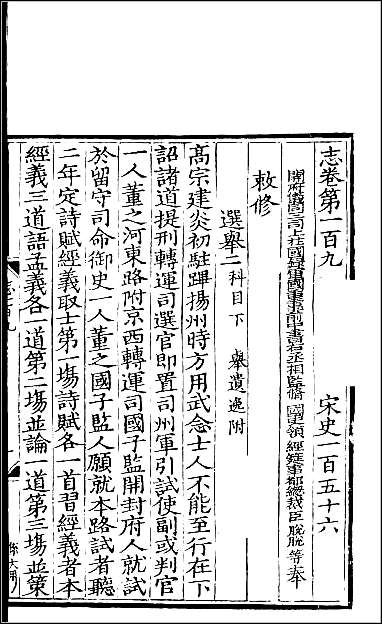 志卷第一百九　宋史一百五十六
開府儀同三司上柱國錄軍國重事前中書右丞相監脩國史領經筵事都總裁臣脫脫等奉
敕修
選舉二科目下　舉遺逸附
高宗建炎初駐蹕揚州時方用武念士人不能至行在下
詔諸道提刑轉運司選官即置司州軍引試使副或判官
一人董之河東路附京西轉運司國子監開封府人就試
於留守司命御史一人董之國子監人願就本路試者聽
二年定詩賦經義取士第一場詩賦各一首習經義者本
經義三道語孟義各一道第二場並論一道第三場並策